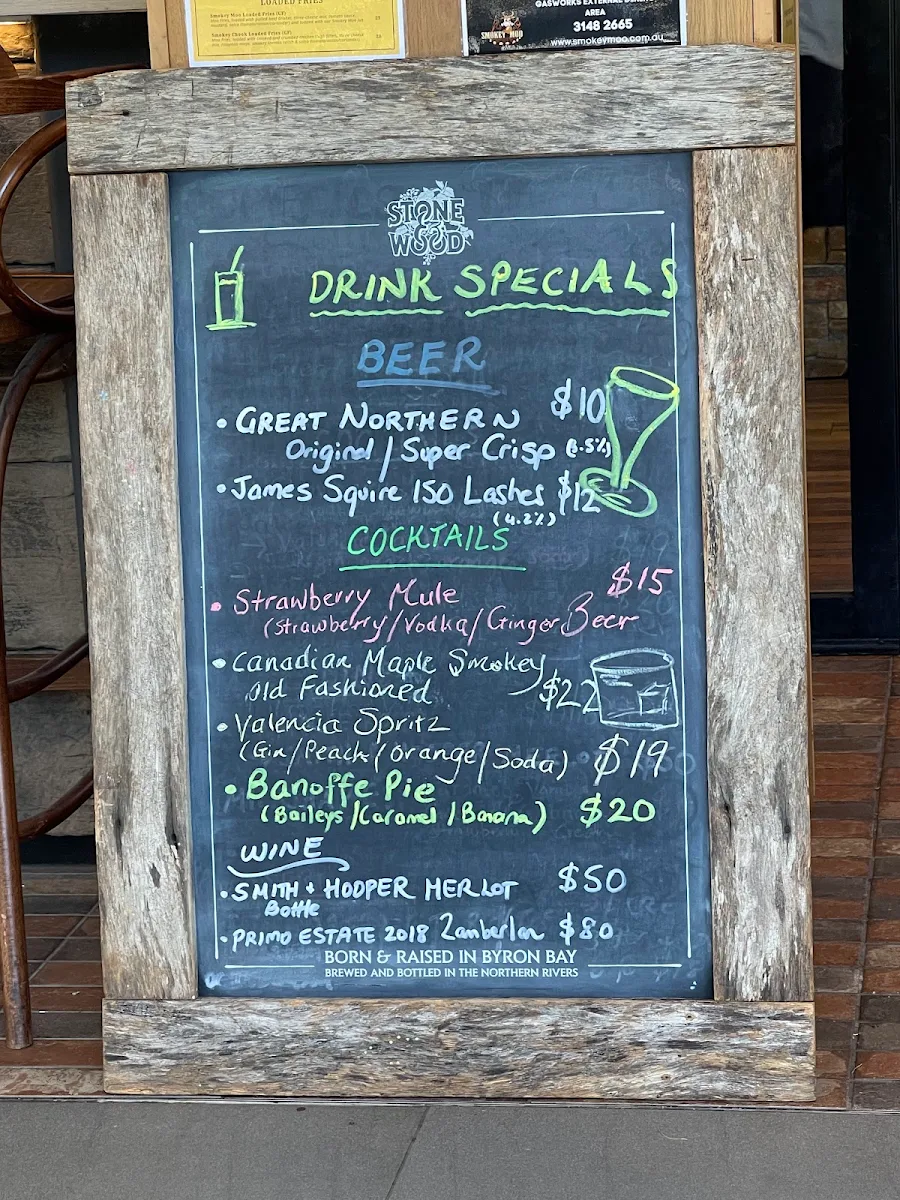 LOADED FRIES
Smokey Moo Loaded Fries (GF)
Smokey Chook Loaded Fries (GF)
SMOKEY MOO
AREA
3148 2665
www.smokeymoo.com.au
STONE
WOOD
DRINK SPECIALS
BEER
• GREAT NORTHERN $10
Original / Super Crisp (3.5%)
• James Squire 150 Lashes $12
(4.2%)
COCKTAILS
• Strawberry Mule $15
(Strawberry/Vodka/Ginger Beer
• Canadian Maple Smokey
Old Fashioned $22
• Valencia Spritz
(Gin/Peach/Orange/Soda) $19
• Banoffe Pie
(Baileys/Caramel/Banana) $20
WINE
• SMITH + HOOPER MERLOT $50
Bottle
• PRIMO ESTATE 2018 Zamberlan $80
BORN & RAISED IN BYRON BAY
BREWED AND BOTTLED IN THE NORTHERN RIVERS